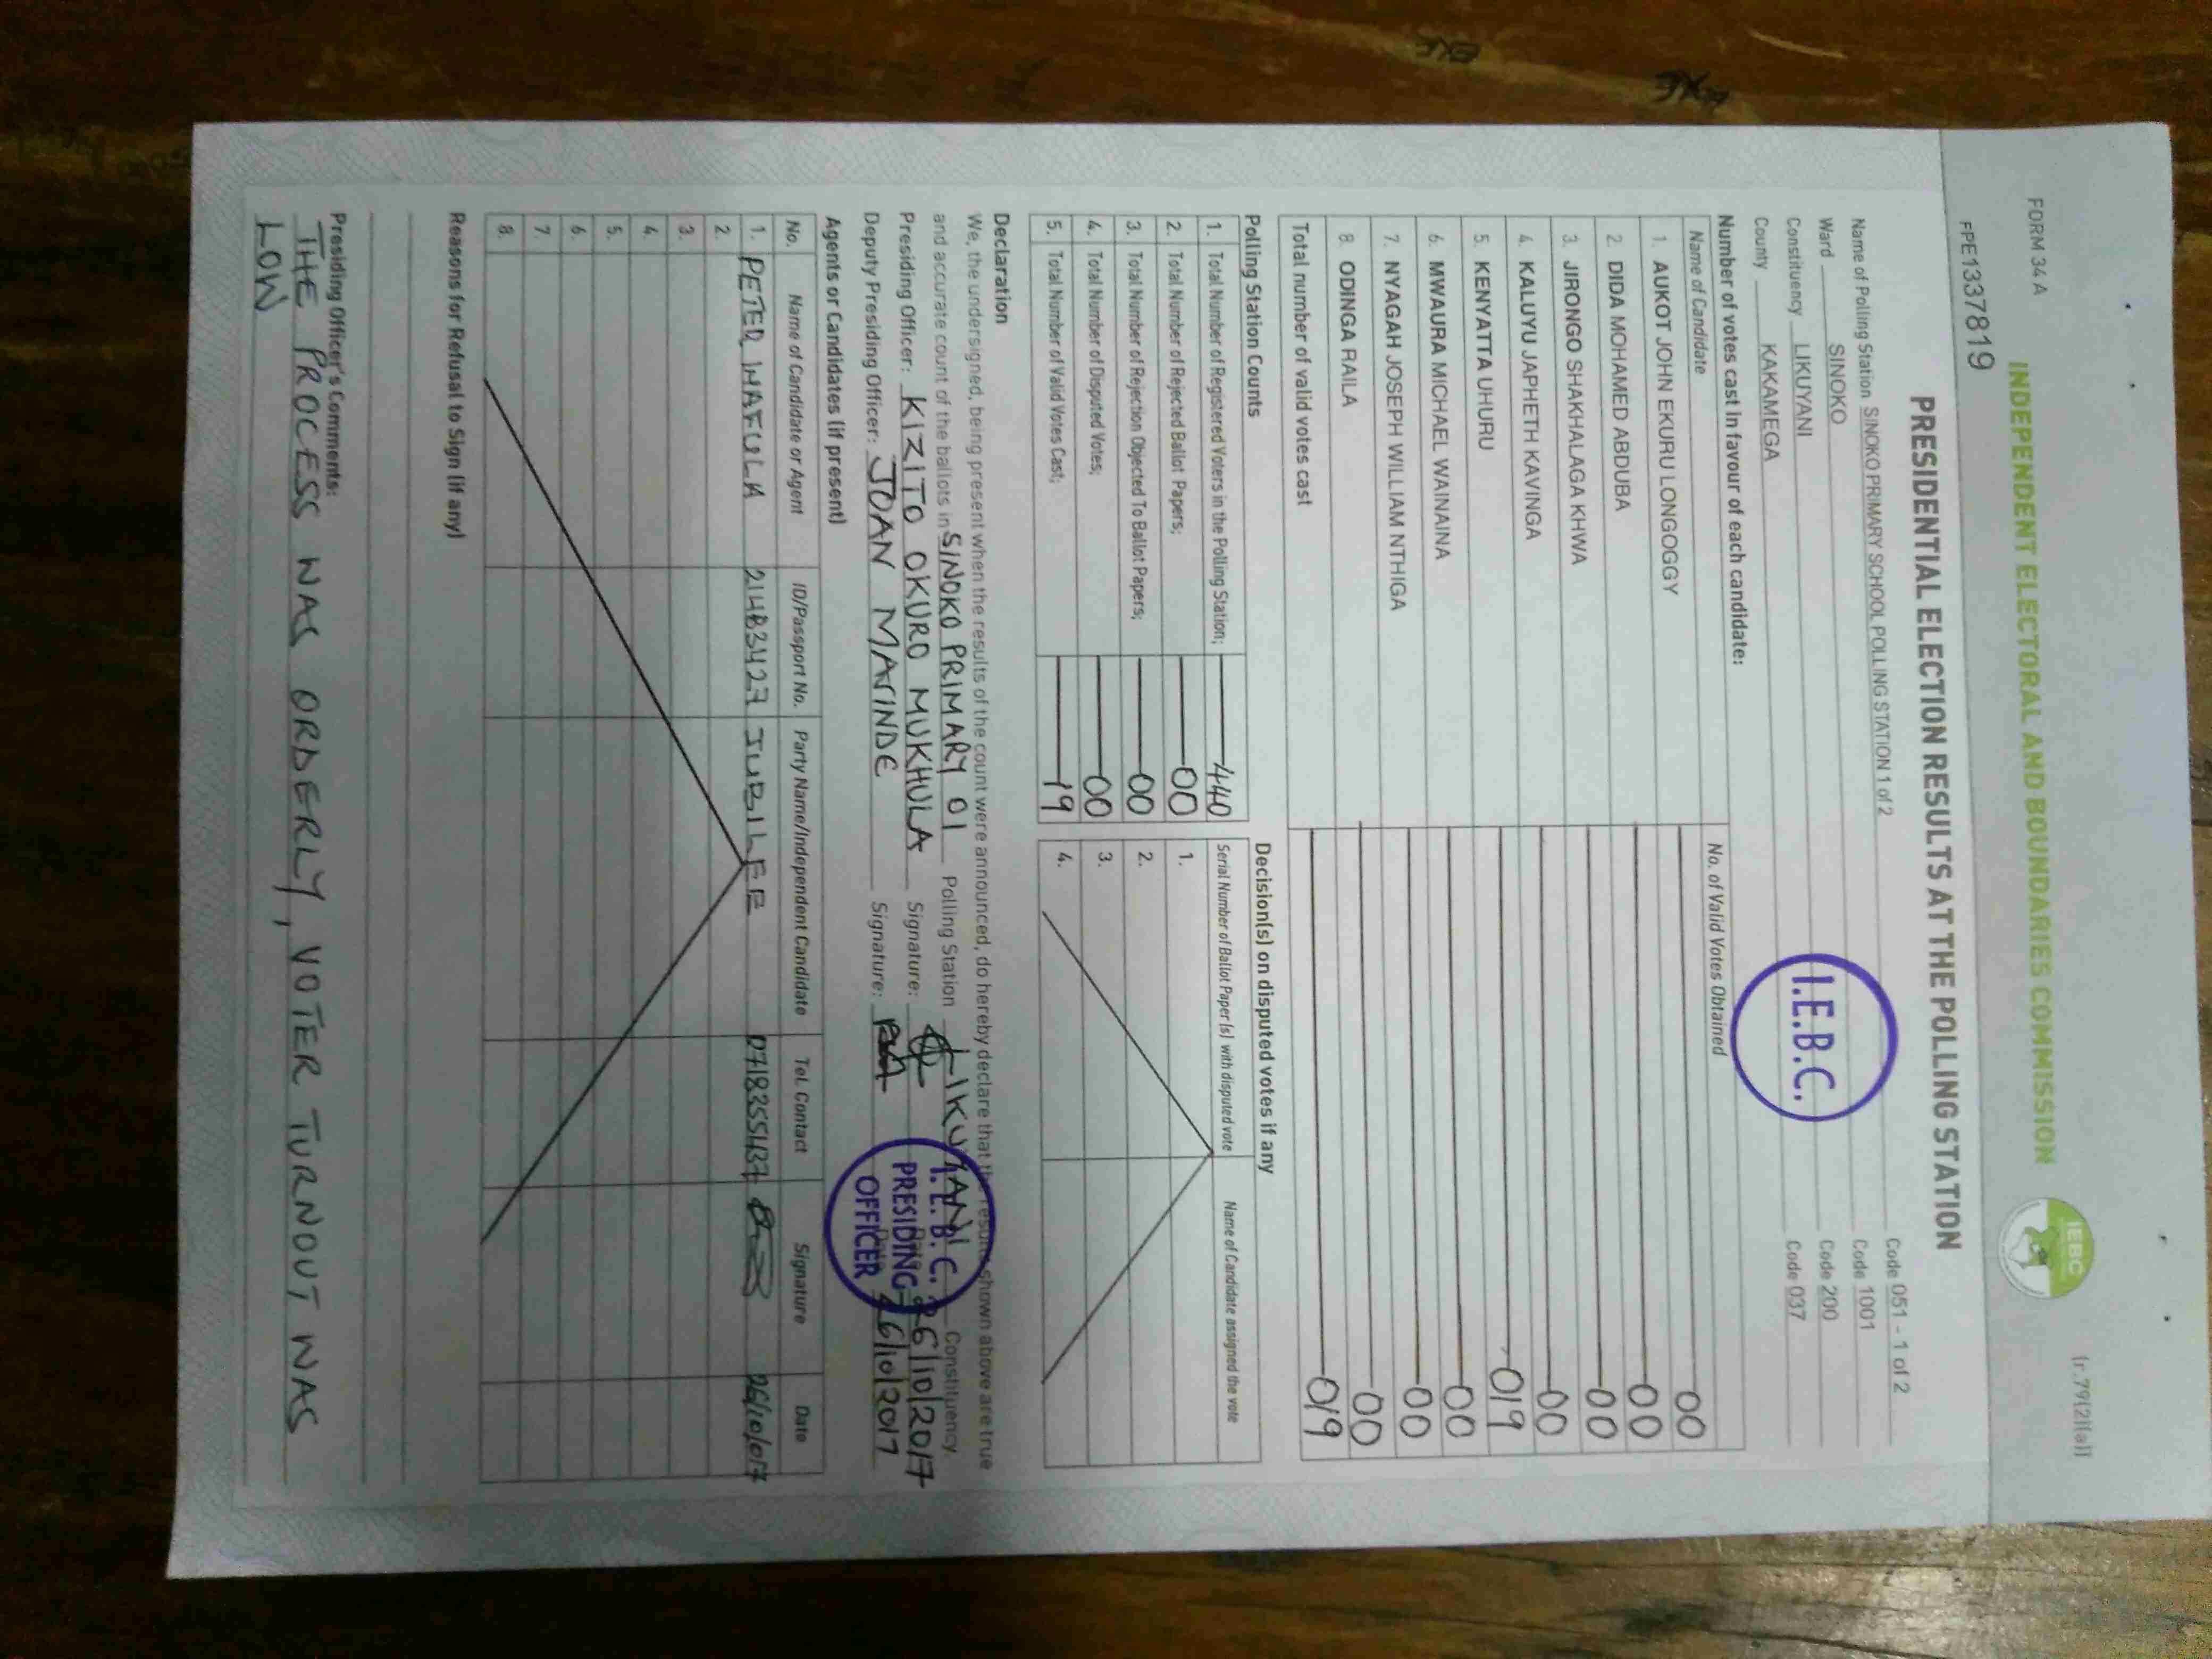 FORM 34 A
(r.79(2)(a))
INDEPENDENT ELECTORAL AND BOUNDARIES COMMISSION
IEBC
FPE1337819
PRESIDENTIAL ELECTION RESULTS AT THE POLLING STATION
Name of Polling Station SINOKO PRIMARY SCHOOL POLLING STATION 1 of 2 Code 051 - 1 of 2
Ward SINOKO Code 1001
Constituency LIKUYANI Code 200
County KAKAMEGA Code 037
I.E.B.C.
Number of votes cast in favour of each candidate:
Name of Candidate No. of Valid Votes Obtained
1. AUKOT JOHN EKURU LONGOGGY 00
2. DIDA MOHAMED ABDUBA 00
3. JIRONGO SHAKHALAGA KHWA 00
4. KALUYU JAPHETH KAVINGA 00
5. KENYATTA UHURU 019
6. MWAURA MICHAEL WAINAINA 00
7. NYAGAH JOSEPH WILLIAM NTHIGA 00
8. ODINGA RAILA 00
Total number of valid votes cast 019
Polling Station Counts
1. Total Number of Registered Voters in the Polling Station; 440
2. Total Number of Rejected Ballot Papers; 00
3. Total Number of Rejection Objected To Ballot Papers; 00
4. Total Number of Disputed Votes; 00
5. Total Number of Valid Votes Cast; 19
Decision(s) on disputed votes if any
Serial Number of Ballot Paper (s) with disputed vote Name of Candidate assigned the vote
1.
2.
3.
4.
Declaration
We, the undersigned, being present when the results of the count were announced, do hereby declare that the results shown above are true
and accurate count of the ballots in SINOKO PRIMARY 01 Polling Station LIKUYANI Constituency.
Presiding Officer: KIZITO OKURO MUKHULA Signature: 26/10/2017
Deputy Presiding Officer: JOAN MARINDE Signature: 26/10/2017
I.E.B.C.
PRESIDING
OFFICER
Agents or Candidates (if present)
No. Name of Candidate or Agent ID/Passport No. Party Name/Independent Candidate Tel. Contact Signature Date
1. PETER WAFULA 21483427 JUBILEE 0718355437 26/10/017
2.
3.
4.
5.
6.
7.
8.
Reasons for Refusal to Sign (if any)
Presiding Officer's Comments:
THE PROCESS WAS ORDERLY, VOTER TURNOUT WAS
LOW